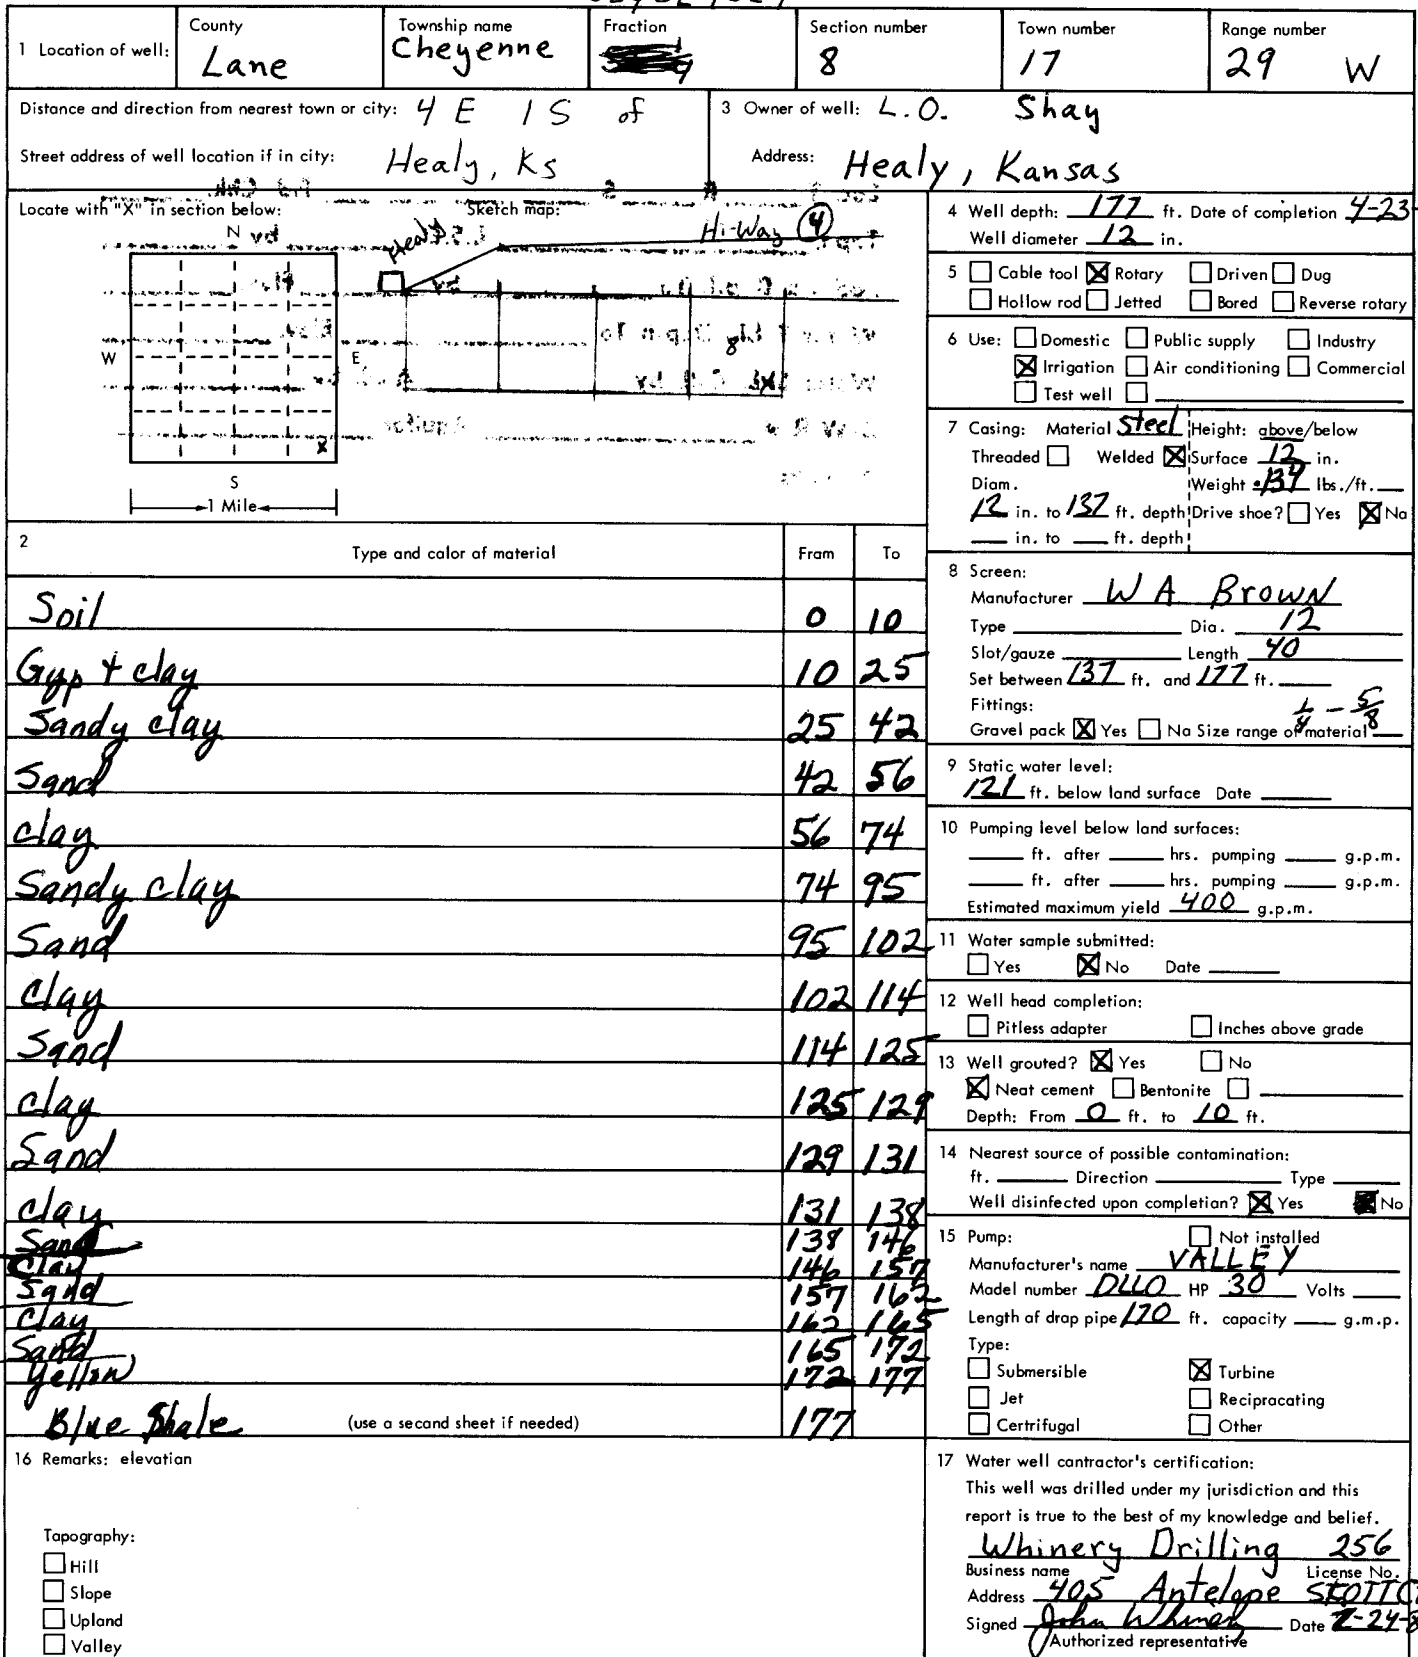 1 Location of well: County Lane Township name Cheyenne Fraction Section number 8 Town number 17 Range number 29 W
Distance and direction from nearest town or city: 4 E 1 S of
Street address of well location if in city: Healy, Ks
3 Owner of well: L.O. Shay
Address: Healy, Kansas
Locate with "X" in section below:
Sketch map:
N
W
E
S
X
1 Mile
Healy
Hi-Way 4
8
2 Type and color of material From To
Soil 0 10
Gyp + clay 10 25
Sandy clay 25 42
Sand 42 56
clay 56 74
Sandy clay 74 95
Sand 95 102
clay 102 114
Sand 114 125
clay 125 129
Sand 129 131
clay 131 138
Sand 138 146
Clay 146 157
Sand 157 162
Clay 162 165
Sand 165 172
Yellow 172 177
Blue Shale (use a second sheet if needed) 177
16 Remarks: elevation
Topography:
Hill
Slope
Upland
Valley
4 Well depth: 177 ft. Date of completion 4-23-
Well diameter 12 in.
5 Cable tool Rotary Driven Dug
Hollow rod Jetted Bored Reverse rotary
6 Use: Domestic Public supply Industry
Irrigation Air conditioning Commercial
Test well
7 Casing: Material Steel Height: above/below
Threaded Welded Surface 12 in.
Diam. Weight lbs./ft.
12 in. to 137 ft. depth Drive shoe? Yes No
in. to ft. depth
8 Screen:
Manufacturer W A Brown
Type Dia. 12
Slot/gauze Length 40
Set between 137 ft. and 177 ft.
Fittings: 1/4 - 5/8
Gravel pack Yes No Size range of material
9 Static water level:
121 ft. below land surface Date
10 Pumping level below land surfaces:
ft. after hrs. pumping g.p.m.
ft. after hrs. pumping g.p.m.
Estimated maximum yield 400 g.p.m.
11 Water sample submitted:
Yes No Date
12 Well head completion:
Pitless adapter Inches above grade
13 Well grouted? Yes No
Neat cement Bentonite
Depth: From 0 ft. to 10 ft.
14 Nearest source of possible contamination:
ft. Direction Type
Well disinfected upon completion? Yes No
15 Pump: Not installed
Manufacturer's name VALLEY
Model number DLLO HP 30 Volts
Length of drop pipe 170 ft. capacity g.m.p.
Type:
Submersible Turbine
Jet Reciprocating
Certrifugal Other
17 Water well contractor's certification:
This well was drilled under my jurisdiction and this
report is true to the best of my knowledge and belief.
Whinery Drilling 256
Business name License No.
Address 405 Antelope
Signed John Whinery Date
Authorized representative